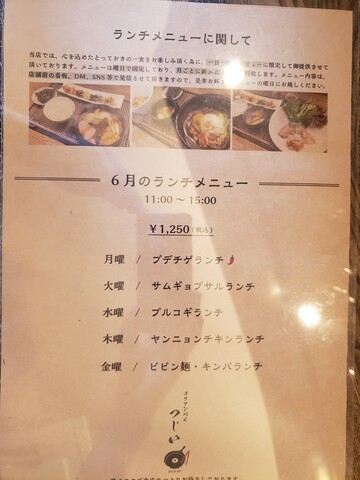 ランチメニューに関して
当店では、心を込めたとっておきの一食をお楽しみ頂く為に、一日
に限定して御提供させて
頂いております。メニューは曜日で固定しており、月ごとに
メニュー内容は、
店舗前の看板、DM、SNS等で発信させて頂きますので、是非お好
の曜日にお越しください。
6月のランチメニュー
11:00 〜 15:00
¥1,250(税込)
月曜 / プデチゲランチ
火曜 / サムギョプサルランチ
水曜 / プルコギランチ
木曜 / ヤンニョンチキンランチ
金曜 / ビビン麺・キンパランチ
コリアンバル
つじい